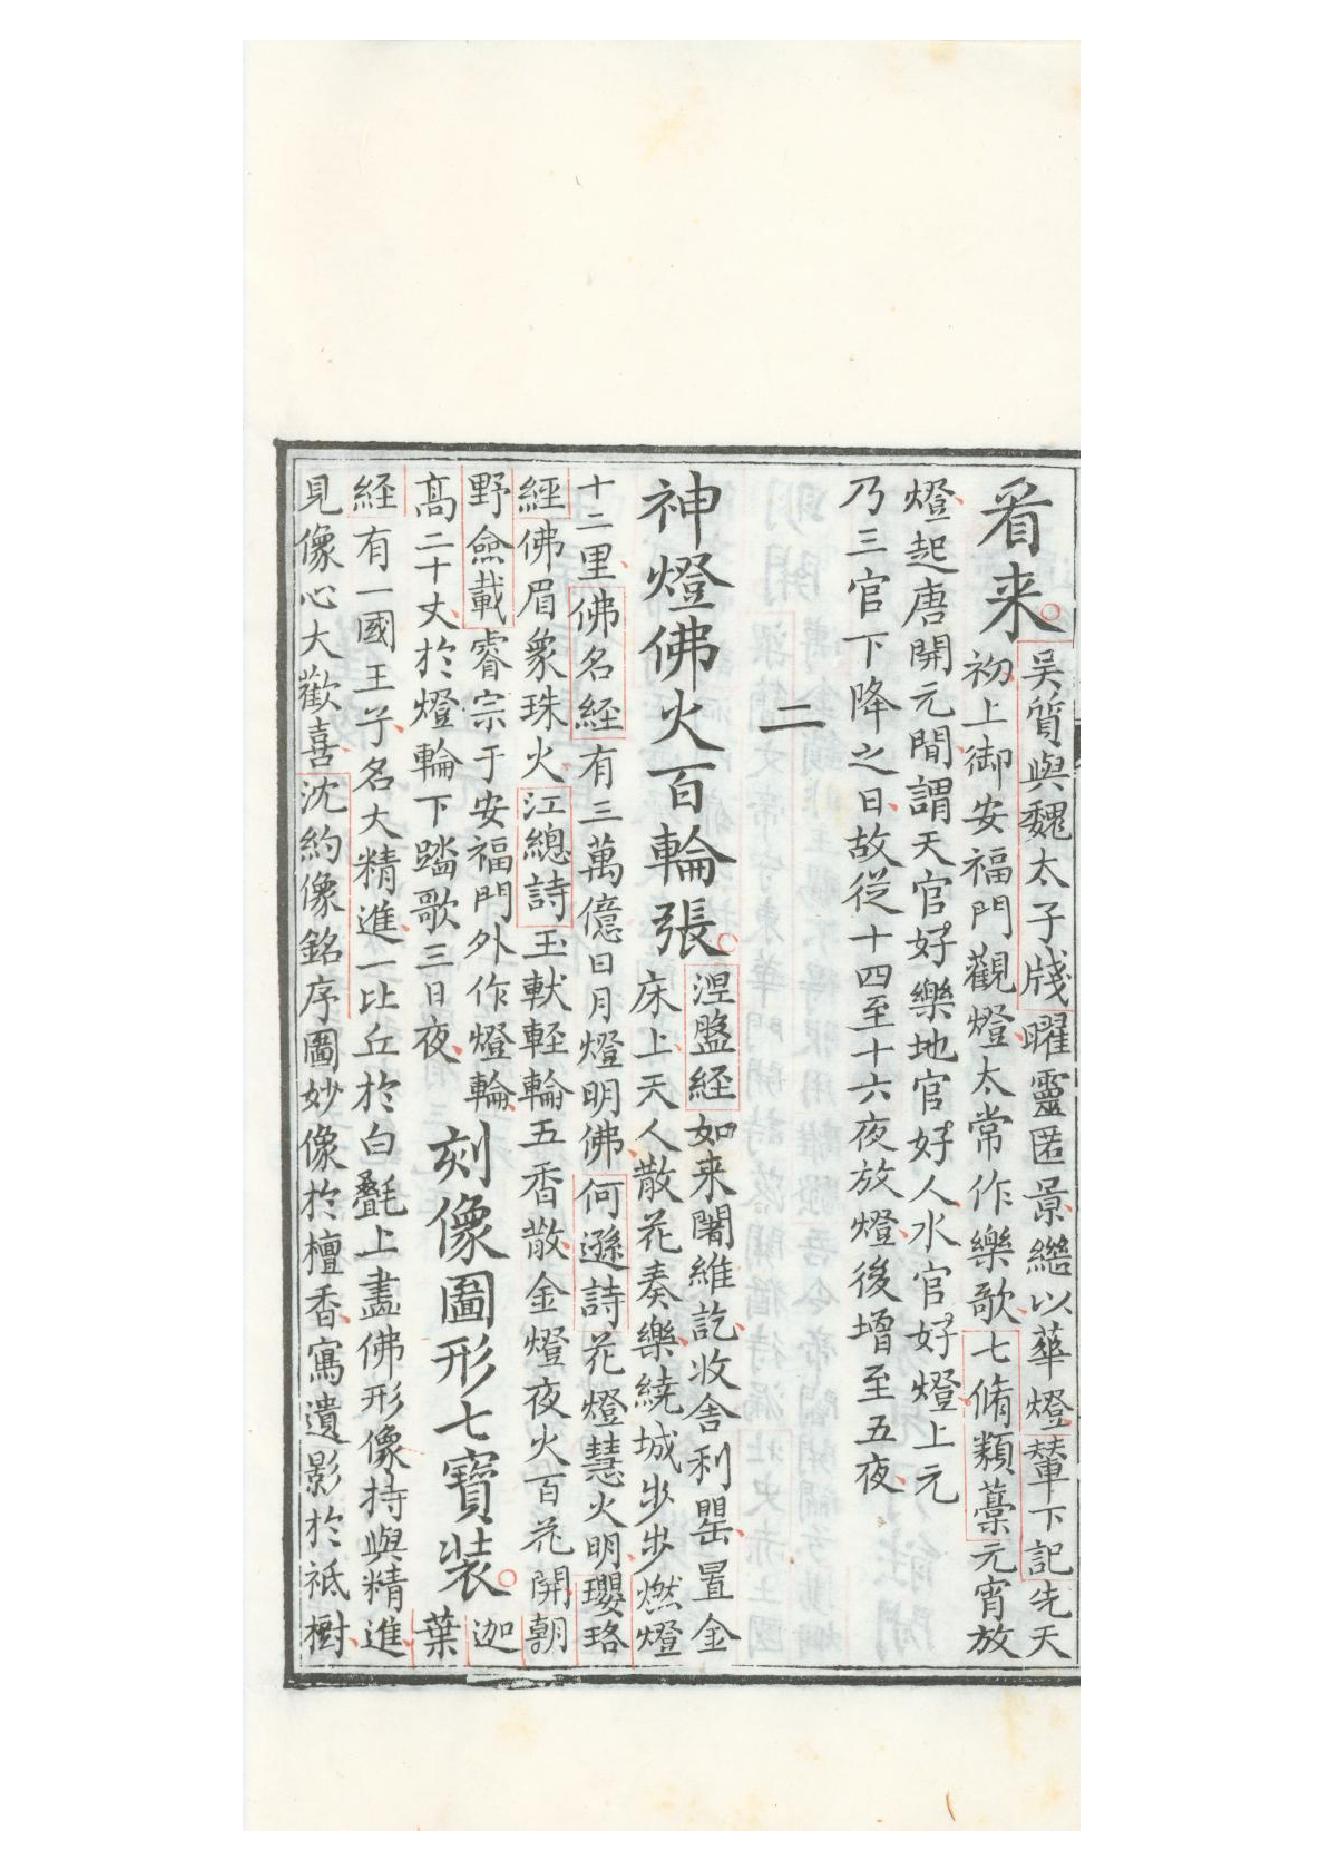 看来吳質與魏太子牋曜靈匿景繼以華燈輦下記先天
初上御安福門觀燈太常作樂歌七脩類藁元宵放
燈起唐開元間謂天官好樂地官好人水官好燈上元
乃三官下降之日故從十四至十六夜放燈後增至五夜
二
神燈佛火百輪張涅盤経如来闍維訖收舍利罌置金
床上天人散花奏樂繞城步步燃燈
十二里佛名経有三萬億日月燈明佛何遜詩花燈慧火明瓔珞
經佛眉象珠火江總詩玉軑輕輪五香散金燈夜火百花開朝
野僉載睿宗于安福門外作燈輪
高二十丈於燈輪下踏歌三日夜刻像圖形七寶装迦
葉
経有一國王子名大精進一比丘於白氎上畫佛形像持與精進
見像心大歡喜沈約像銘序圖妙像於檀香寫遺影於祗樹